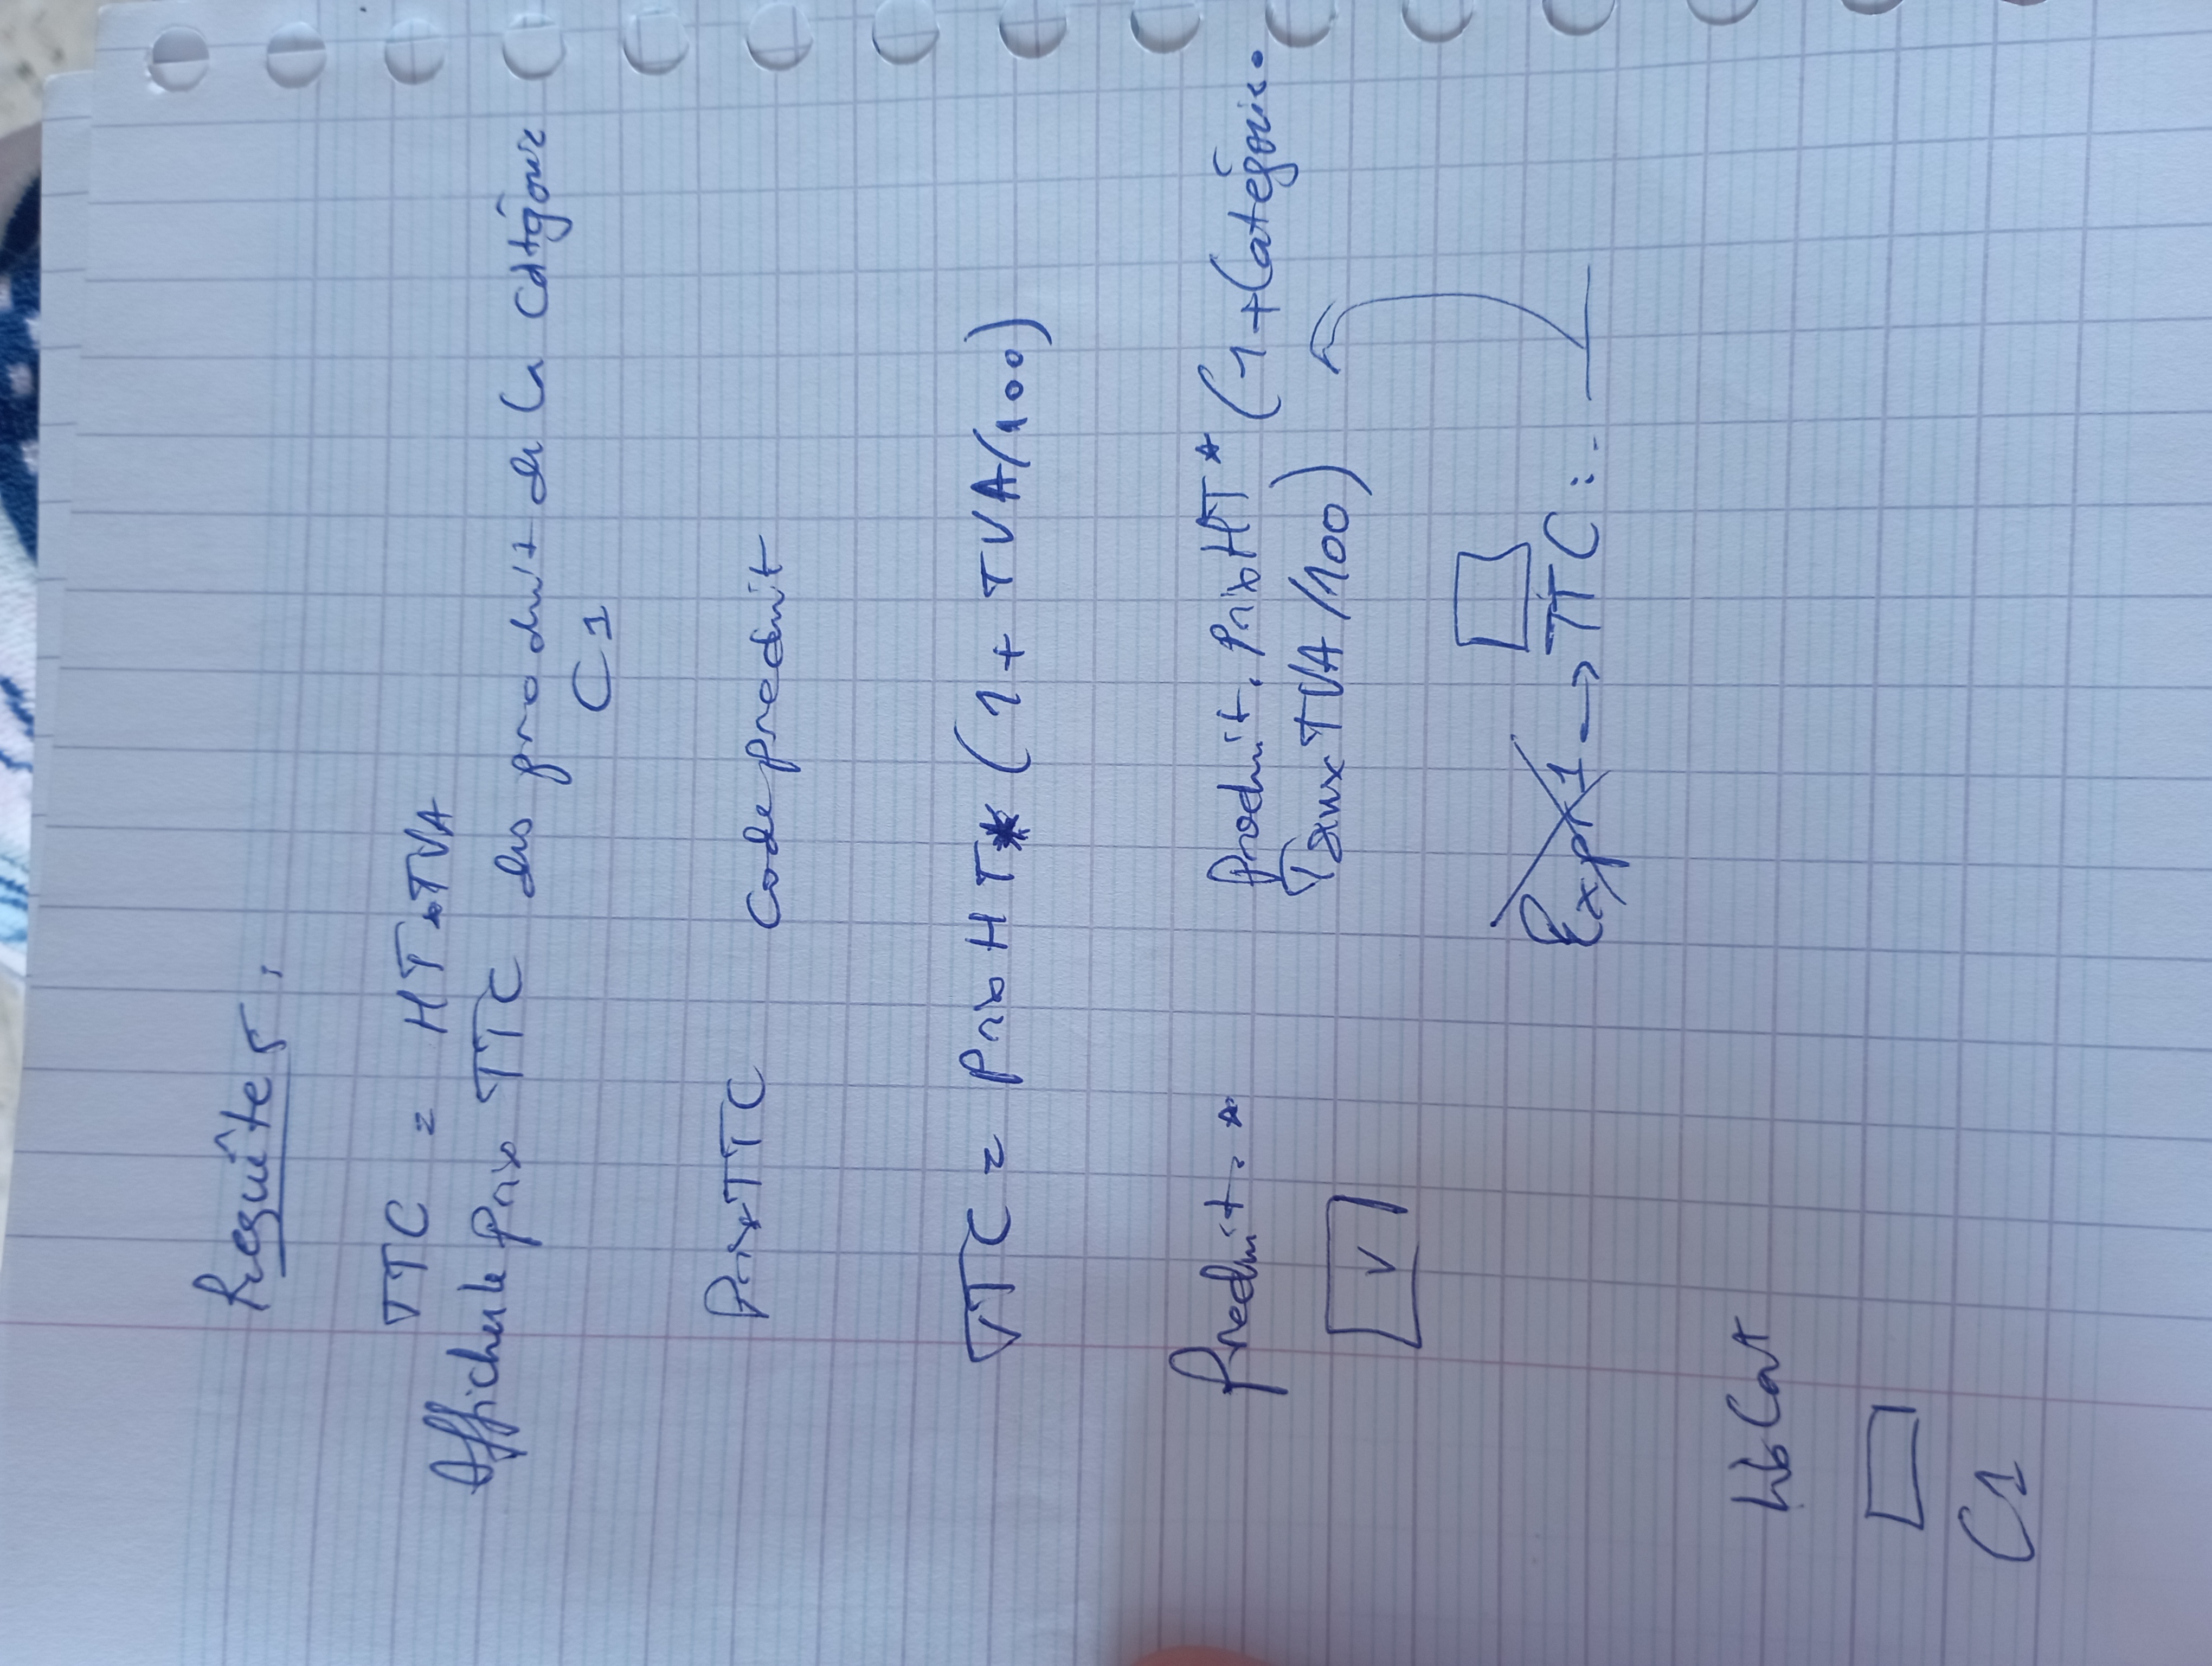 Requête 5 :
TTC = HT x TVA
Afficher le prix TTC des produit de la catégorie
C1
PrixTTC Codeproduit
TTC = PrixHT * (1 + TVA/100)
Produit.* Produit.PrixHT * (1 + Catégorie.
TauxTVA /100)
V
Expr1 → TTC :
LibCat
C1